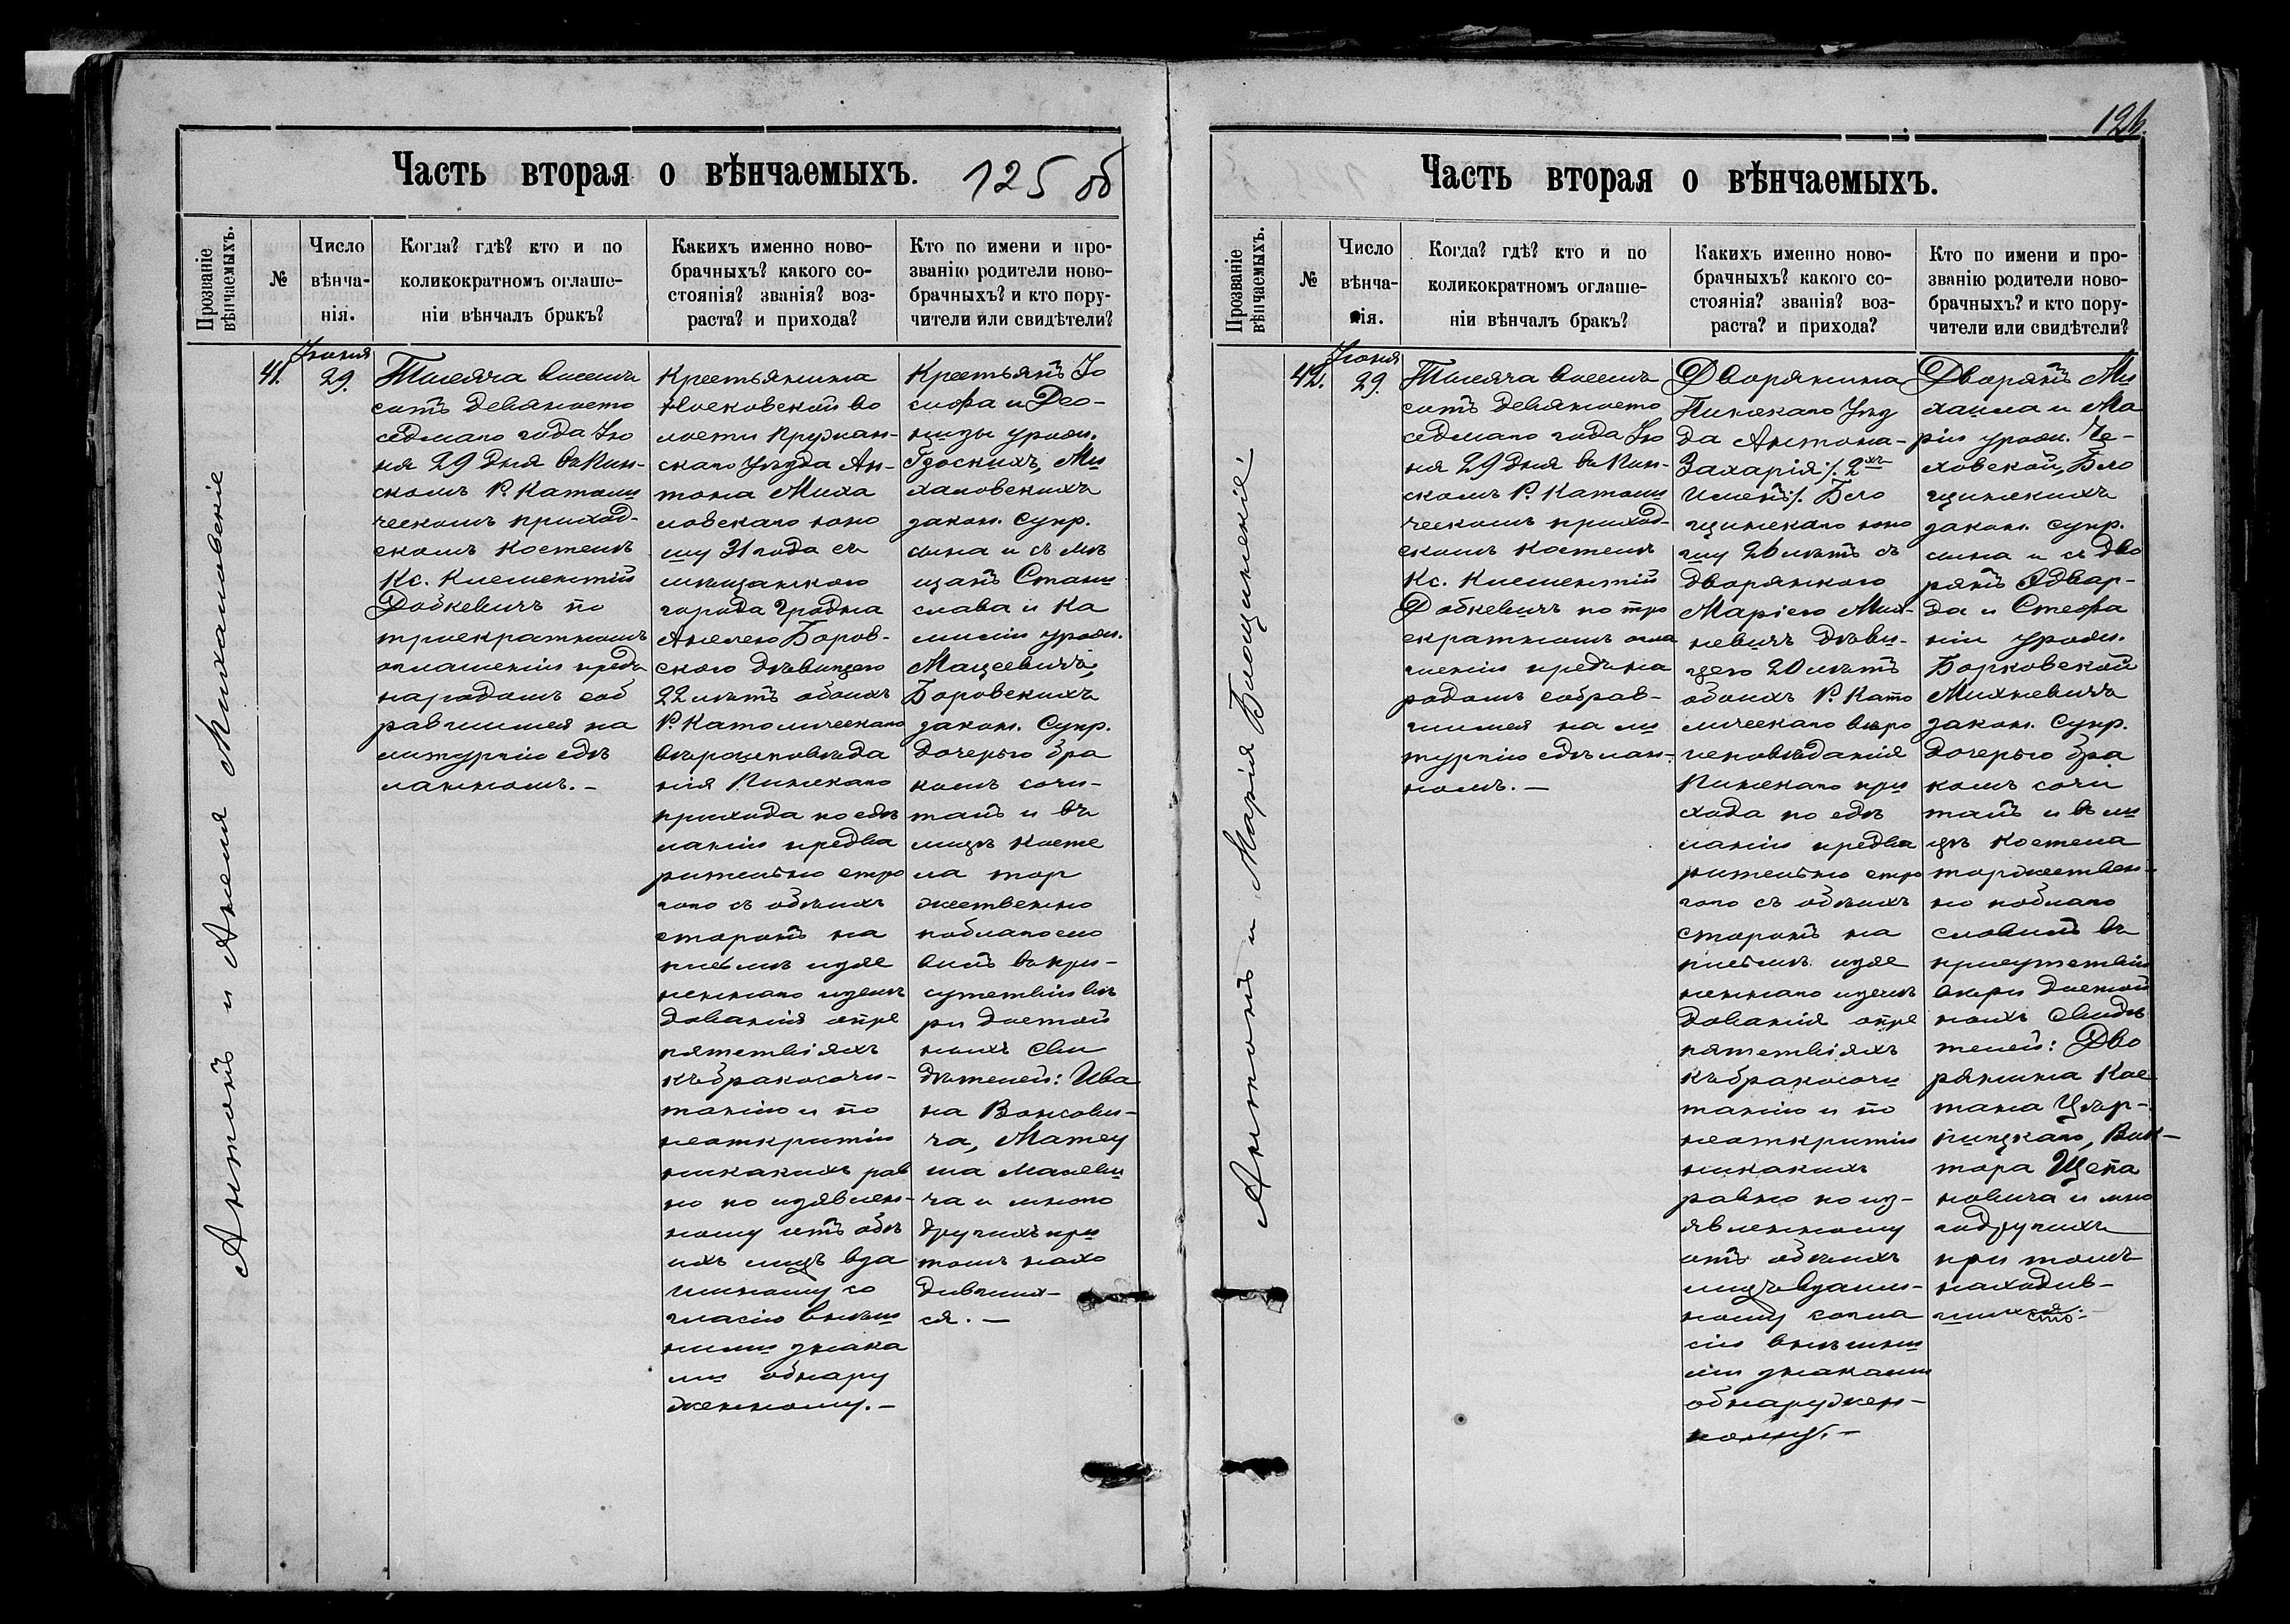 Часть вторая о вѣнчаемыхъ.
125 об
Прозваніе
вѣнчаемыхъ.
№
Число
вѣнча-
нія.
Когда? гдѣ? кто и по
коликократномъ оглаше-
ніи вѣнчалъ бракъ?
Какихъ именно ново-
брачныхъ? какого со-
стоянія? званія? воз-
раста? и прихода?
Кто по имени и про-
званію родители ново-
брачныхъ? и кто пору-
чители или свидѣтели?
Антонъ и Анеля Михаловскіе
41.
Іюня
29.
Тысяча восемь
сотъ девяносто
седмаго года Iю
ня 29 дня въ Пин-
скомъ Р. Католи
ческомъ приход-
скомъ костелѣ
Кс. Клементій
Добкевичъ по
троекратномъ
оглашеніи предъ
народомъ соб
равшимся на
литургію сдѣ
ланномъ. -
Крестьянина
Носковской во
лости Пружан-
скаго Уѣзда Ан-
тона Миха
ловскаго юно
шу 31 года съ
мѣщанкою
города Гродна
Анелею Боров-
скою дѣвицею
22 лѣтъ обоихъ
Р. Католическаго
вѣроисповѣда
нія Пинскаго
прихода по сдѣ
ланіи предва
рительно стро
гого съ обѣихъ
сторонъ на
письмѣ изяс
неннаго изслѣ
дованія о пре
пятствіяхъ
къ бракосоче-
танію и по
неоткрытіи
никакихъ рав
но по изявлен-
ному отъ обѣ
ихъ лицъ вза
имному со
гласію внѣш
ними знака
ми обнару
женному. -
Крестьянъ Iо
сифа и Део-
низы урожд.
Гзоскихъ, Ми
халовскихъ
закон. супр.
сына и съ мѣ
щанъ Стани
слава и Ка
миліи урожд.
Мацеевичъ,
Боровскихъ
закон. Супр.
дочерью бра
комъ соче-
талъ и въ
лицѣ косте
ла тор
жественно
поблагосло
вилъ въ при-
сутствіи вѣ
ры достой
ныхъ сви
дѣтелей: Ива
на Вонсови-
ча, Матеу
ша Малеви
ча и много
другихъ при
томъ нахо
дивших-
ся. -
126.
Часть вторая о вѣнчаемыхъ.
Прозваніе
вѣнчаемыхъ.
№
Число
вѣнча-
нія.
Когда? гдѣ? кто и по
коликократномъ оглаше-
ніи вѣнчалъ бракъ?
Какихъ именно ново-
брачныхъ? какого со-
стоянія? званія? воз-
раста? и прихода?
Кто по имени и про-
званію родители ново-
брачныхъ? и кто пору-
чители или свидѣтели?
Антонъ и Марія Блощинскіе
42.
Іюня
29.
Тысяча восемь
сотъ девяносто
седмаго года Iю
ня 29 дня въ Пин-
скомъ Р. Католи
ческомъ приход-
скомъ костелѣ
Кс. Клементій
Добкевичъ по тро
екратномъ огла
шеніи предъ на
родомъ собрав-
шимся на ли
тургію сдѣлан-
номъ. -
Дворянина
Пинскаго Уѣз
да Антона-
Захарія /. 2хъ
именъ /. Бло
щинскаго юно
шу 26 лѣтъ съ
дворянкою
Маріею Мих-
невичъ дѣви-
цею 20 лѣтъ
обоихъ Р. Като
лическаго вѣро
исповѣданія
Пинскаго при
хода по сдѣ
ланіи предва
рительно стро
гого съ обѣихъ
сторонъ на
письмѣ изяс
неннаго изслѣ
дованія о пре
пятствіяхъ
къ бракосоче
танію и по
неоткрытіи
никакихъ
равно по из-
явленному
отъ обѣихъ
лицъ взаим-
ному согла
сію внѣшни
ми знаками
обнаружен-
ному. -
Дворянъ Ми
хаила и Ма
ріи урожд. Че-
ховской, Бло
щинскихъ
закон. супр.
сына и съ дво
рянъ Эдвар-
да и Стефа
ніи урожд.
Борковской
Михневичъ
закон. Супр.
дочерью бра
комъ соче
талъ и въ ли
цѣ костела
торжествен-
но поблаго
словилъ въ
присутствіи
вѣры достой
ныхъ свидѣ
телей: Дво
рянина Кае
тана
Вик-
тора Щепа
новича и мно
го другихъ
при томъ
находив-
шихся. -